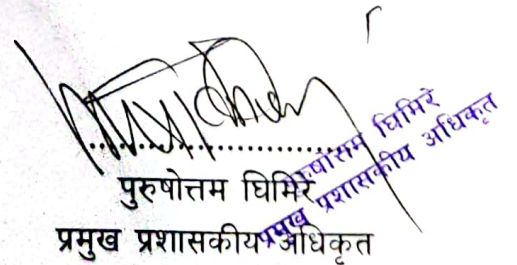 पुरुषोत्तम घिमिरे
प्रमुख प्रशासकीय अधिकृत
घिमिरे
प्रमुख प्रशासकीय अधिकृत